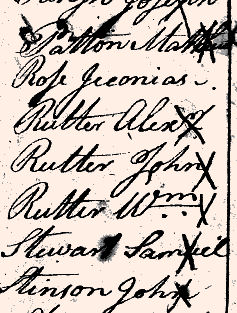 Joseph
Patton Matt
Rose Jeconias.
Rutter Alexr
Rutter John
Rutter Wm
Stewart Samuel
Stinson John